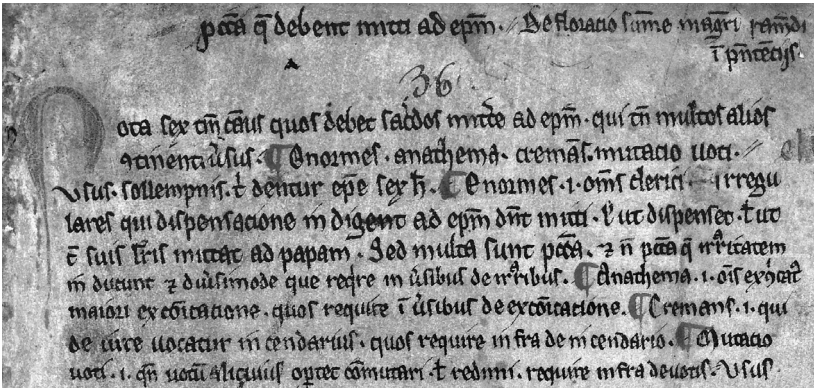 pc̄cā q̄ debent mitti ad ep̄m. Defloracio sūme mag̅ri raym̄di
ī pn̄tēciis
36
Nota sex tm̄ cāus quos debet sac̄dos mittere ad ep̄m. qui tn̄ multos alios
ꝯtinent v̄sus. ¶ Enormes. anathema. cremās. mutacio uoti.
Vsus. sollempnis. t̄ dentur ep̄e sex h̄. ¶ Enormes .i. om̄s clerici irregu
lares qui dispensacione indigent ad ep̄m dn̄t mitti. ut dispenset. t̄ ut
c̄ suis lr̄is mittat ad papam. Sed multa sunt pc̄cā. ⁊ n̄ pc̄cā q̄ irr̄itatem
inducunt ⁊ diūsimode que reqͥre in v̄sibus de irr̄ibus. ¶ Anathema .i. ōis
maiori excōicatione. quos require ī v̄sibus de excōicatione. ¶ Cremans .i. qui
de iure uocatur incendarius. quos require infra de incendario. ¶ Mutacio
uoti .i. qn̄ uotū alicuius optet cōmutari t̄ redimi. require infra de uotis. Vsus